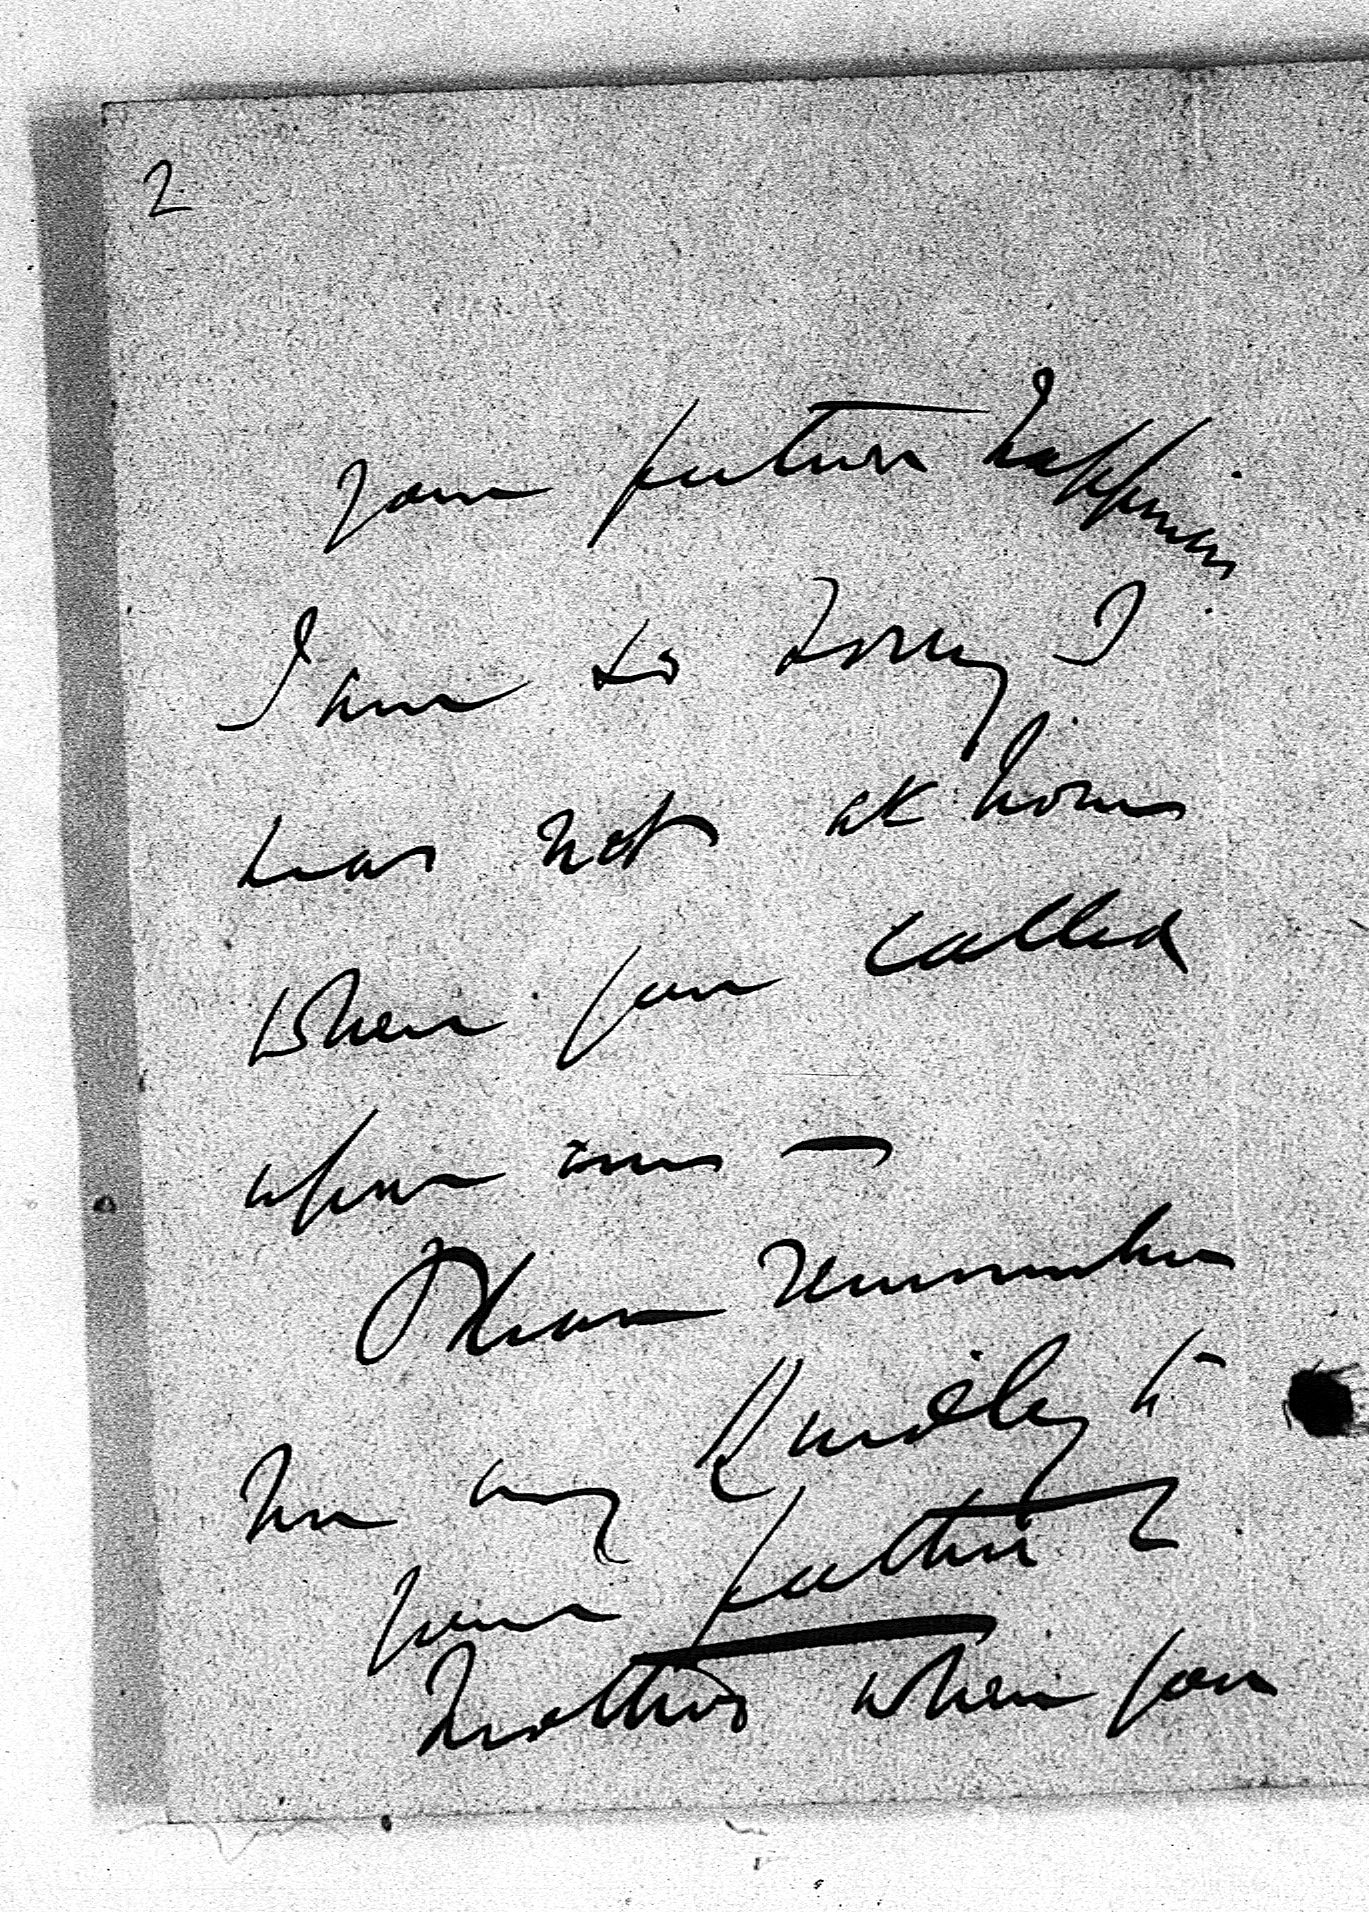 2
your future happiness
I am so sorry I
was not at home
when you called
upon me —
Please remember
me very kindly to
your father &
Mother when you